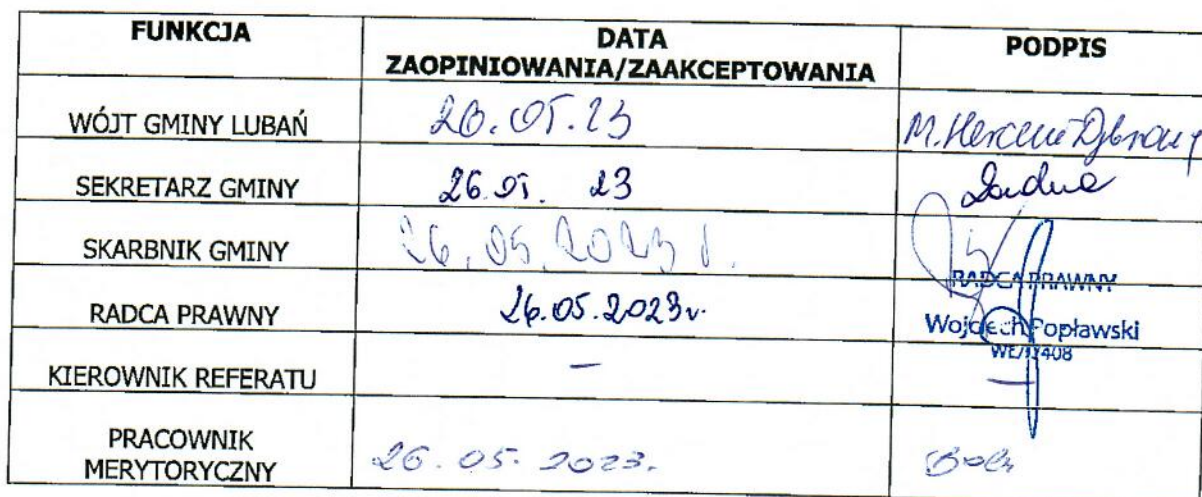 FUNKCJA
DATA
ZAOPINIOWANIA/ZAAKCEPTOWANIA
PODPIS
WÓJT GMINY LUBAŃ
26.05.23
SEKRETARZ GMINY
26.05. 23
SKARBNIK GMINY
26.05.2023 r.
RADCA PRAWNY
26.05.2023r.
RADCA PRAWNY
Wojciech Popławski
KIEROWNIK REFERATU
–
–
PRACOWNIK
MERYTORYCZNY
26.05.2023.